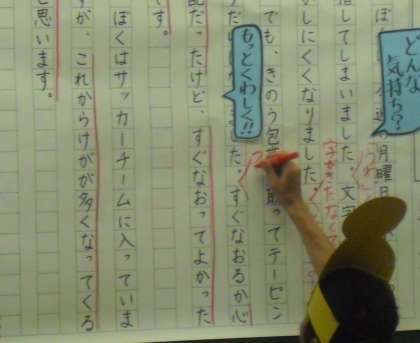 どんな
気持ち？
の月曜日
してしまいました。文字
字がきたなく
しにくくなりました。
もっとくわしく!!
でも、きのう包 取ってテーピン
た。すぐなおるか心
配だったけど、すぐなおってよかった
です。
ぼくはサッカーチームに入っていま
すが、これからけがが多くなってくる
と思います。